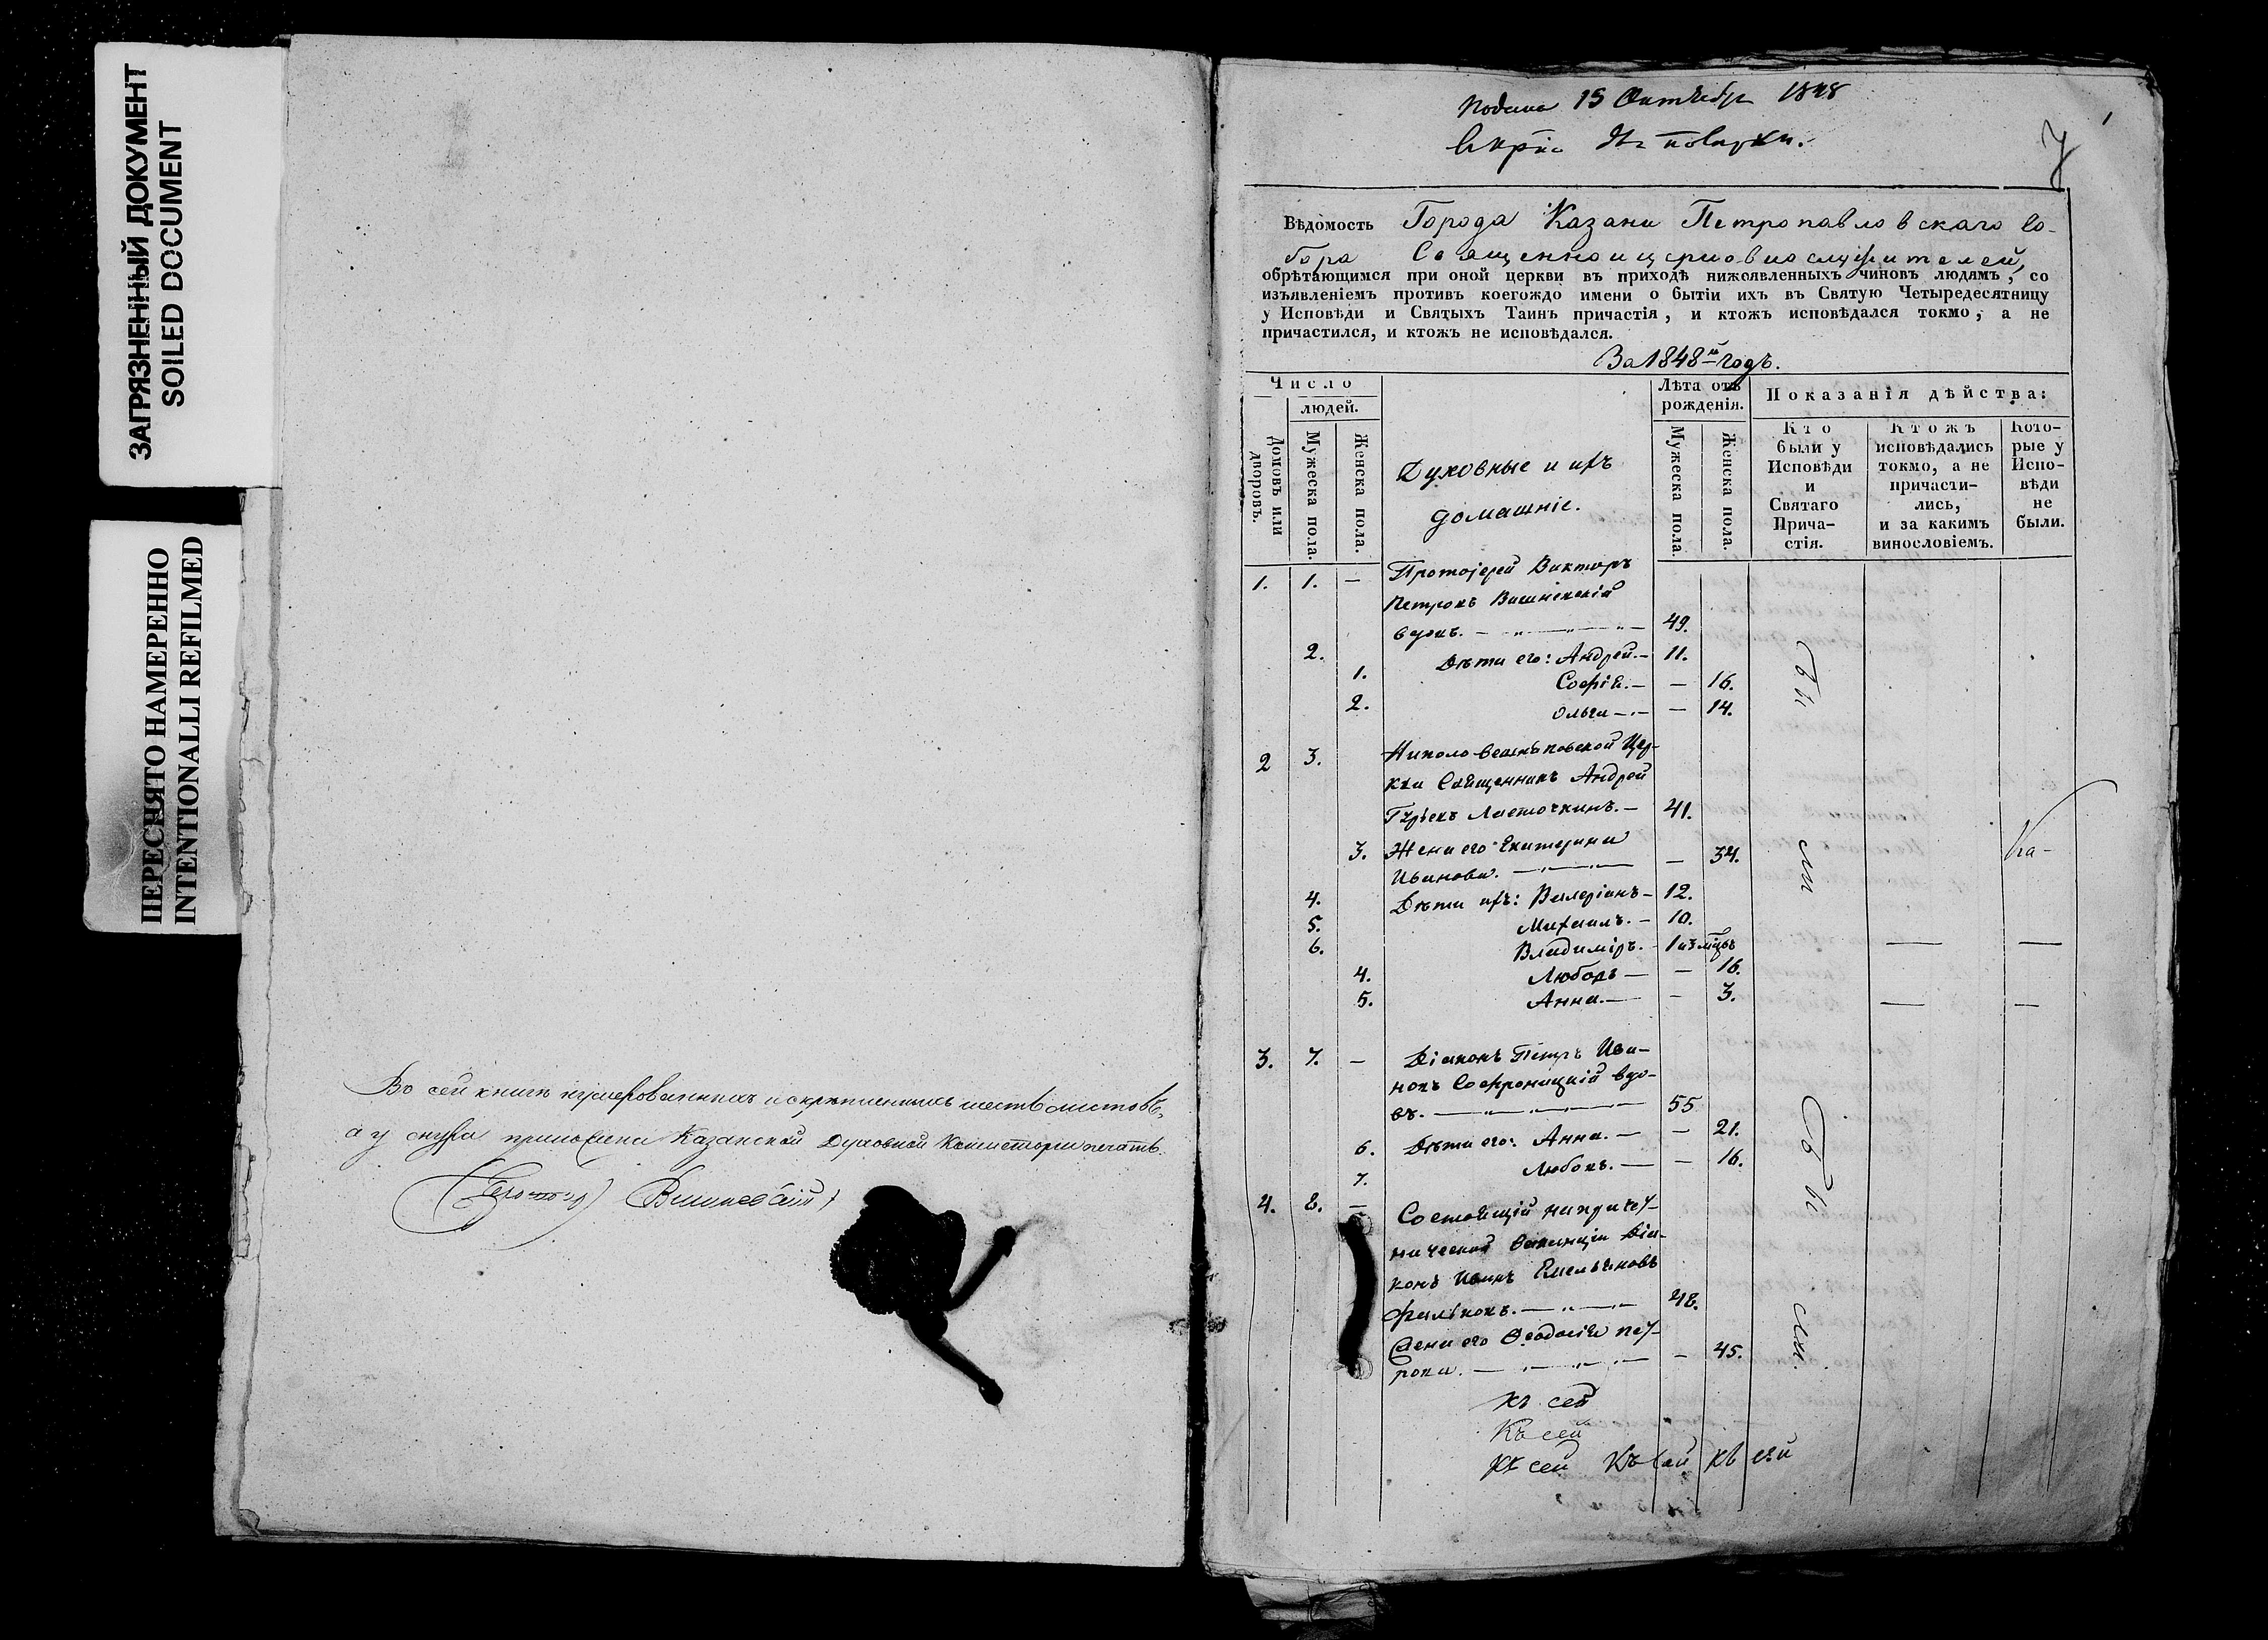 ЗАГРЯЗНЕННЫЙ ДОКУМЕНТ
SOILED DOCUMENT
ПЕРЕСНЯТО НАМЕРЕННО
INTENTIONALLI REFILMED
Въ сей книгѣ нумерованныхъ и скрѣпленныхъ шесть листовъ,
а у снура приложена Казанской Духовной Консисторіи печать.
Вишневскій
Подана 15 Октября 1848
7
Вѣдомость Города Казани Петропавловскаго Со-
бора Священно и церковнослужителей,
обрѣтающимся при оной церкви въ приходѣ нижеявленныхъ чиновъ людямъ, со
изъявленіемъ противъ коегождо имени о бытіи ихъ въ Святую Четыредесятницу
у Исповѣди и Святыхъ Таинъ причастія, и ктожъ исповѣдался токмо, а не
причастился, и ктожъ не исповѣдался.
За 1848й годъ.
Число
людей.
Домовъ или дворовъ.
Мужеска пола.
Женска пола.
Духовные и ихъ
домашніе.
Лѣта отъ
рожденія.
Мужеска пола
Женска пола.
Показанія дѣйства:
Кто
были у
Исповѣди
и
Святаго
Прича-
стія.
Ктожъ
исповѣдались
токмо, а не
причасти-
лись,
и за какимъ
винословіемъ.
Кото-
рые у
Испо-
вѣди
не
были.
1. 1. — Протоіерей Викторъ
Петровъ Вишневскій
вдовъ. — 49.
2. Дѣти его: Андрей. — 11.
1. Софія. — — 16.
2. Ольга — — 14.
Бы
2 3. Николо Вешняковской Цер-
кви Священникъ Андрей
Гурьевъ Ласточкинъ. — 41.
3. Жена его Екатерина
Иванова. — — 34.
ли
Ка-
4. Дѣти ихъ: Валеріанъ — 12.
5. Михаилъ. — 10.
6. Владиміръ. — 1 и 3 мѣцъ — —
4. Любовь — — 16.
5. Анна. — — 3. — —
3. 7. — Діаконъ Петръ Ива-
новъ Софроницкій вдо-
въ. — 55
6. Дѣти его: Анна. — — 21.
7. Любовь. — — 16.
Бы
4. 8. — Состоящій на причет-
нической Ваканціи Діа-
конъ Иванъ Емельяновъ
Фальковъ. — 48.
Жена его Ѳеодосія Пет-
рова. — — 45.
ли.
Къ сей
Къ сей
Къ сей Къ сей Къ сей